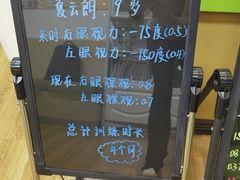 夏云朗：9岁
来时右眼视力：-75度(0.5)
左眼视力：-150度(0.4)
现在右眼裸视：0.8
左眼裸视：0.7
总计训练时长
4个月